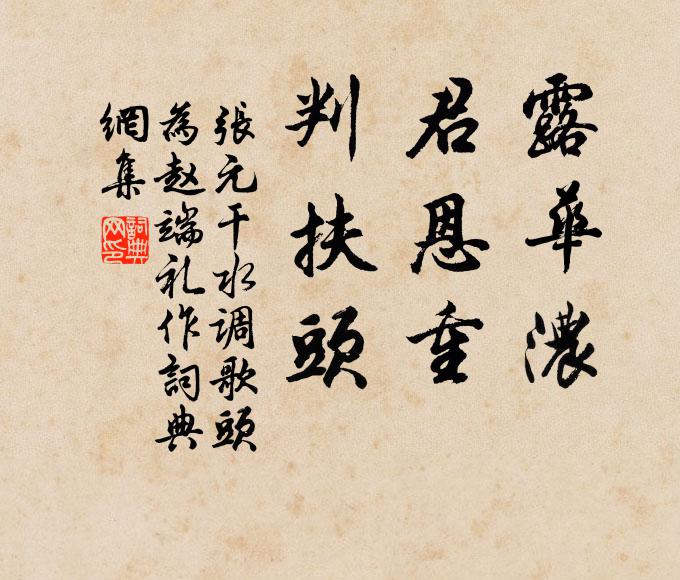 露華濃
君恩重
判扶頭
張元干水调歌頭
為赵端礼作詞典
網集
詞典
网印